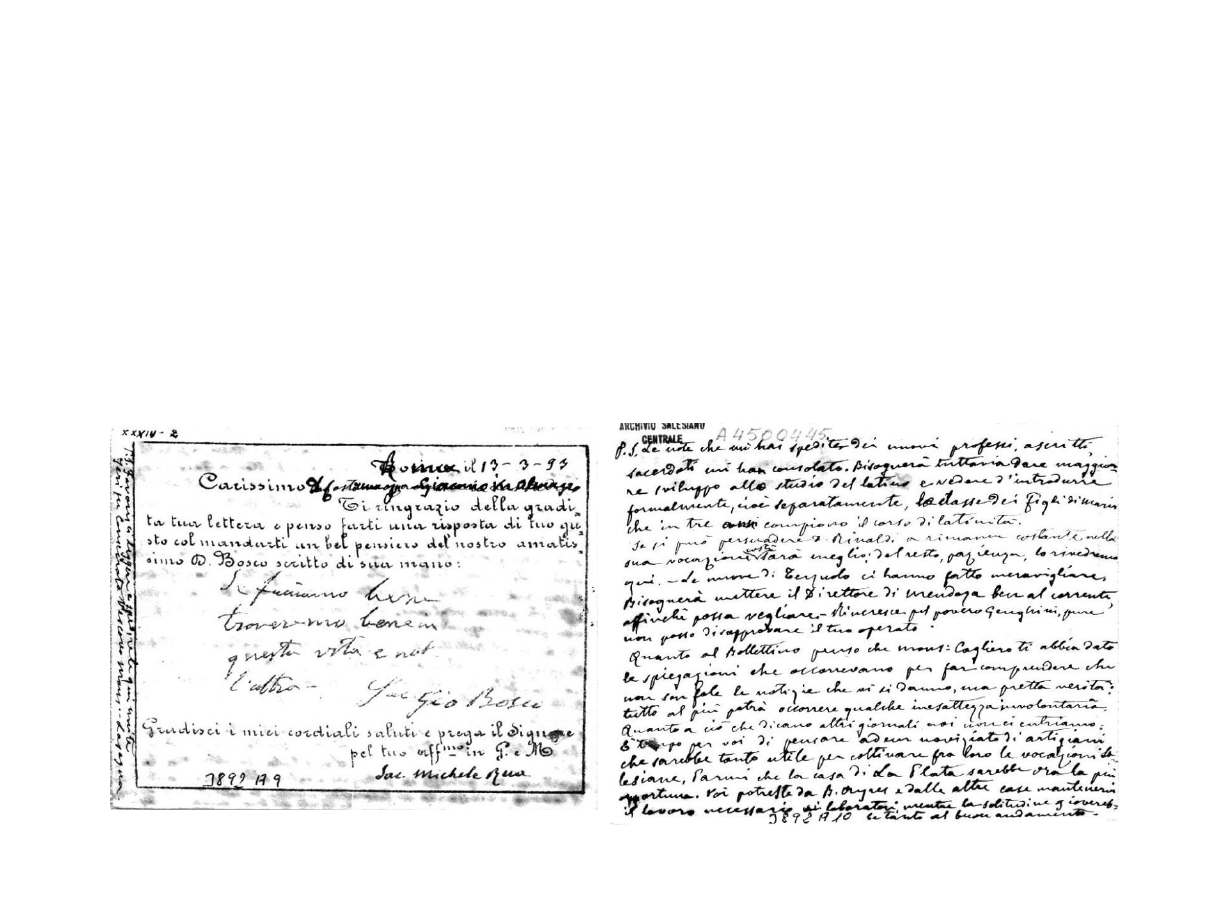 XXXIV - 2
Roma, il 13-3-93
Carissimo D. Costamagna Giacomo in Almagro
Ti ringrazio della gradi-
ta tua lettera e penso farti una risposta di tuo gu-
sto col mandarti un bel pensiero del nostro amatis-
simo D. Bosco scritto di sua mano:
Se facciamo bene
troveremo bene in
questa vita e nel
l'altra -
Sac Gio Bosco
Gradisci i miei cordiali saluti e prega il Signore
pel tuo aff.mo in G. e M
Sac. Michele Rua
3892 A 9
ARCHIVIO SALESIANO
CENTRALE
A4500445
P.S. Le note che mi hai spedito dei nuovi professi, ascritti,
sacerdoti mi han consolato. Bisognerà tuttavia dare maggio
re sviluppo allo studio del latino e vedere d'introdurre
formalmente, cioè separatamente, la classe dei figli di Maria
che in tre anni compiono il corso di latinità.
Se si può persuadere D. Rinaldi a rimaner costante nella
sua vocazione costì sarà meglio: del resto, pazienza, lo rivedremo
qui. - Le nuove di ci hanno fatto meravigliare,
Bisognerà mettere il Direttore di Mendoza ben al corrente,
affinchè possa vegliare. - Rincresce pel povero Genghini, pure
non posso disapprovare il tuo operato.
Quanto al Bollettino penso che mons: Cagliero ti abbia dato
le spiegazioni che occorrevano per far comprendere che
non son fole le notizie che vi si danno, ma pretta verità:
tutto al più potrà occorrere qualche inesattezza involontaria.
Quanto a ciò che dicano altri giornali noi non ci entriamo.
È tempo per voi di pensare ad un noviziato di artigiani
che sarebbe tanto utile per coltivare fra loro le vocazioni Sa
lesiane, Parmi che la casa di La Plata sarebbe ora la più
opportuna. Voi potreste da B. Ayres e dalle altre case mantenervi
il lavoro necessario ai laboratori, mentre la solitudine gioverebbe
3892 A 10 tanto al buon andamento.